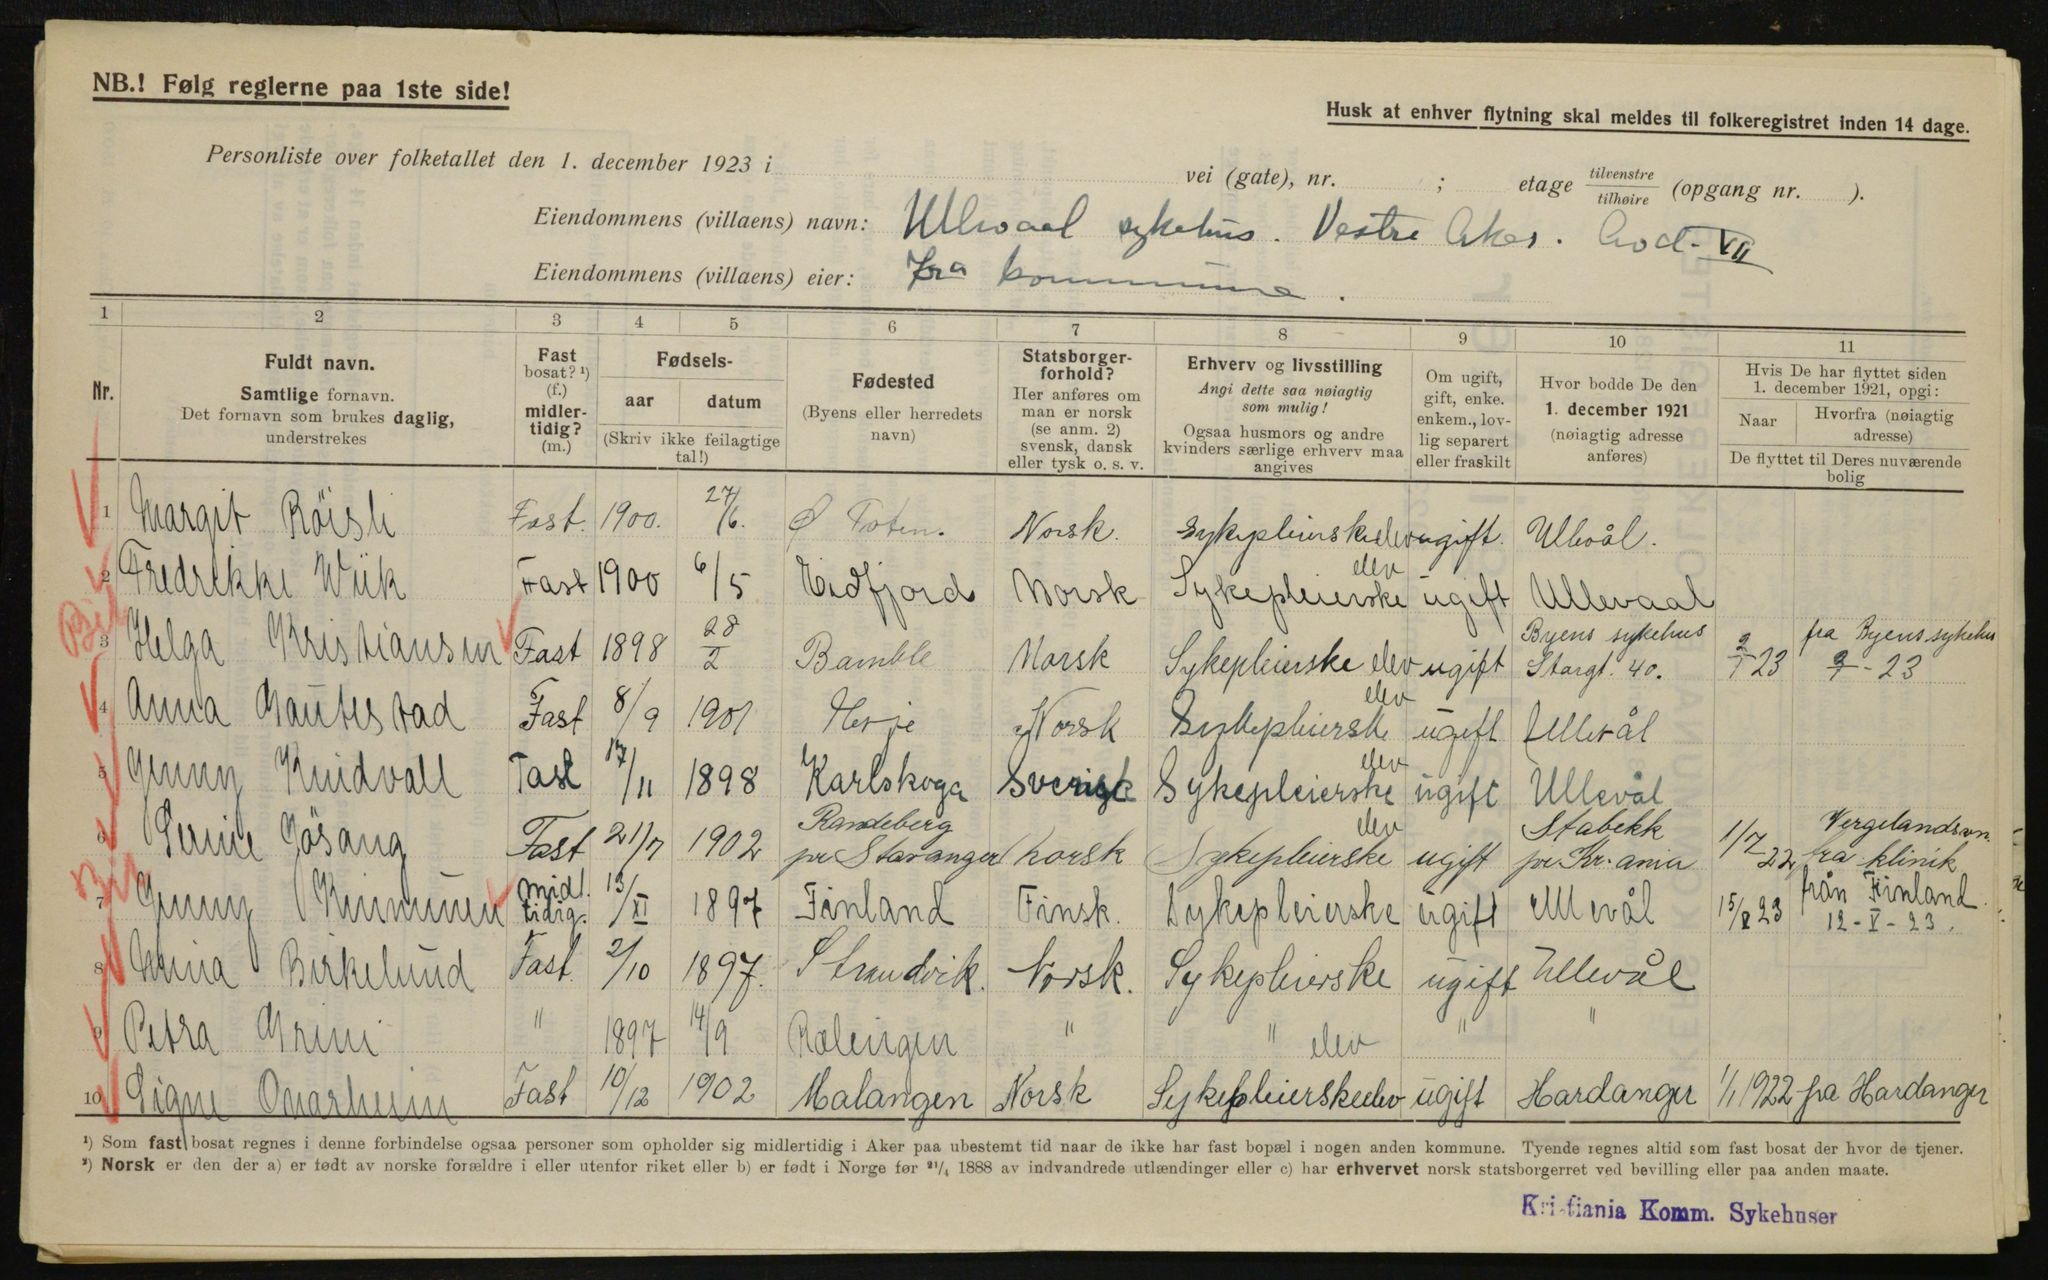 NB.! Følg reglerne paa 1ste side!
Husk at enhver flytning skal meldes til folkeregistret inden 14 dage.
Personliste over folketallet den 1. december 1923 i vei (gate), nr. ; etage tilvenstre / tilhøire (opgang nr. ).
Eiendommens (villaens) navn: Ullevaal sykehus. Vestre Aker. Avd. VII
Eiendommens (villaens) eier: kommune.
1 2 3 4 5 6 7 8 9 10 11
Nr.
Fuldt navn.
Samtlige fornavn.
Det fornavn som brukes daglig,
understrekes
Fast
bosat? ¹)
(f.)
midler-
tidig?
(m.)
Fødsels-
aar datum
(Skriv ikke feilagtige
tal!)
Fødested
(Byens eller herredets
navn)
Statsborger-
forhold?
Her anføres om
man er norsk
(se anm. 2)
svensk, dansk
eller tysk o. s. v.
Erhverv og livsstilling
Angi dette saa nøiagtig
som mulig!
Ogsaa husmors og andre
kvinders særlige erhverv maa
angives
Om ugift,
gift, enke.
enkem., lov-
lig separert
eller fraskilt
Hvor bodde De den
1. december 1921
(nøiagtig adresse
anføres)
Hvis De har flyttet siden
1. december 1921, opgi:
Naar Hvorfra (nøiagtig
adresse)
De flyttet til Deres nuværende
bolig
1 Margit Röisli Fast. 1900. 27/6. Ø Toten. Norsk. Sykepleierskeelev ugift. Ullevål.
2 Fredrikke Wiik Fast 1900 6/5 Eidfjord Norsk Sykepleierske elev ugift Ullevaal
3 Helga Kristiansen Fast 1898 28/2 Bamble Norsk Sykepleierske elev ugift Byens sykehus Storgt. 40. 2/1 23 fra Byens sykehus 2/1 - 23
4 Anna Gautestad Fast 8/9 1901 Herje Norsk Sykepleierske elev ugift Ullevål
5 Jenny Kindvall Fast 17/11 1898 Karlskoga Svensk Sykepleierske elev ugift Ullevål
6 Gösang Fast 21/7 1902 Randeberg pr Stavanger norsk Sykepleierske elev ugift Stabekk pr Kr.ania 1/7 22 fra klinik
7 Jenny Kinnunen midl. tidig. 13/XI 1897 Finland Finsk. Sykepleierske ugift Ullevål 15/V 23 från Finland 12-V-23.
8 Birkelund Fast 2/10 1897. Strandvik. Norsk. Sykepleierske ugift Ullevål
9 Petra Grini " 1897 14/9 Rælingen " " elev " "
10 Signe Onarheim Fast 10/12 1902 Malangen Norsk Sykepleierskeelev ugift Hardanger 1/1 1922 fra Hardanger
¹) Som fast bosat regnes i denne forbindelse ogsaa personer som opholder sig midlertidig i Aker paa ubestemt tid naar de ikke har fast bopæl i nogen anden kommune. Tyende regnes altid som fast bosat der hvor de tjener.
²) Norsk er den der a) er født av norske forældre i eller utenfor riket eller b) er født i Norge før ²¹/₄ 1888 av indvandrede utlændinger eller c) har erhvervet norsk statsborgerret ved bevilling eller paa anden maate.
Kristiania Komm. Sykehuser